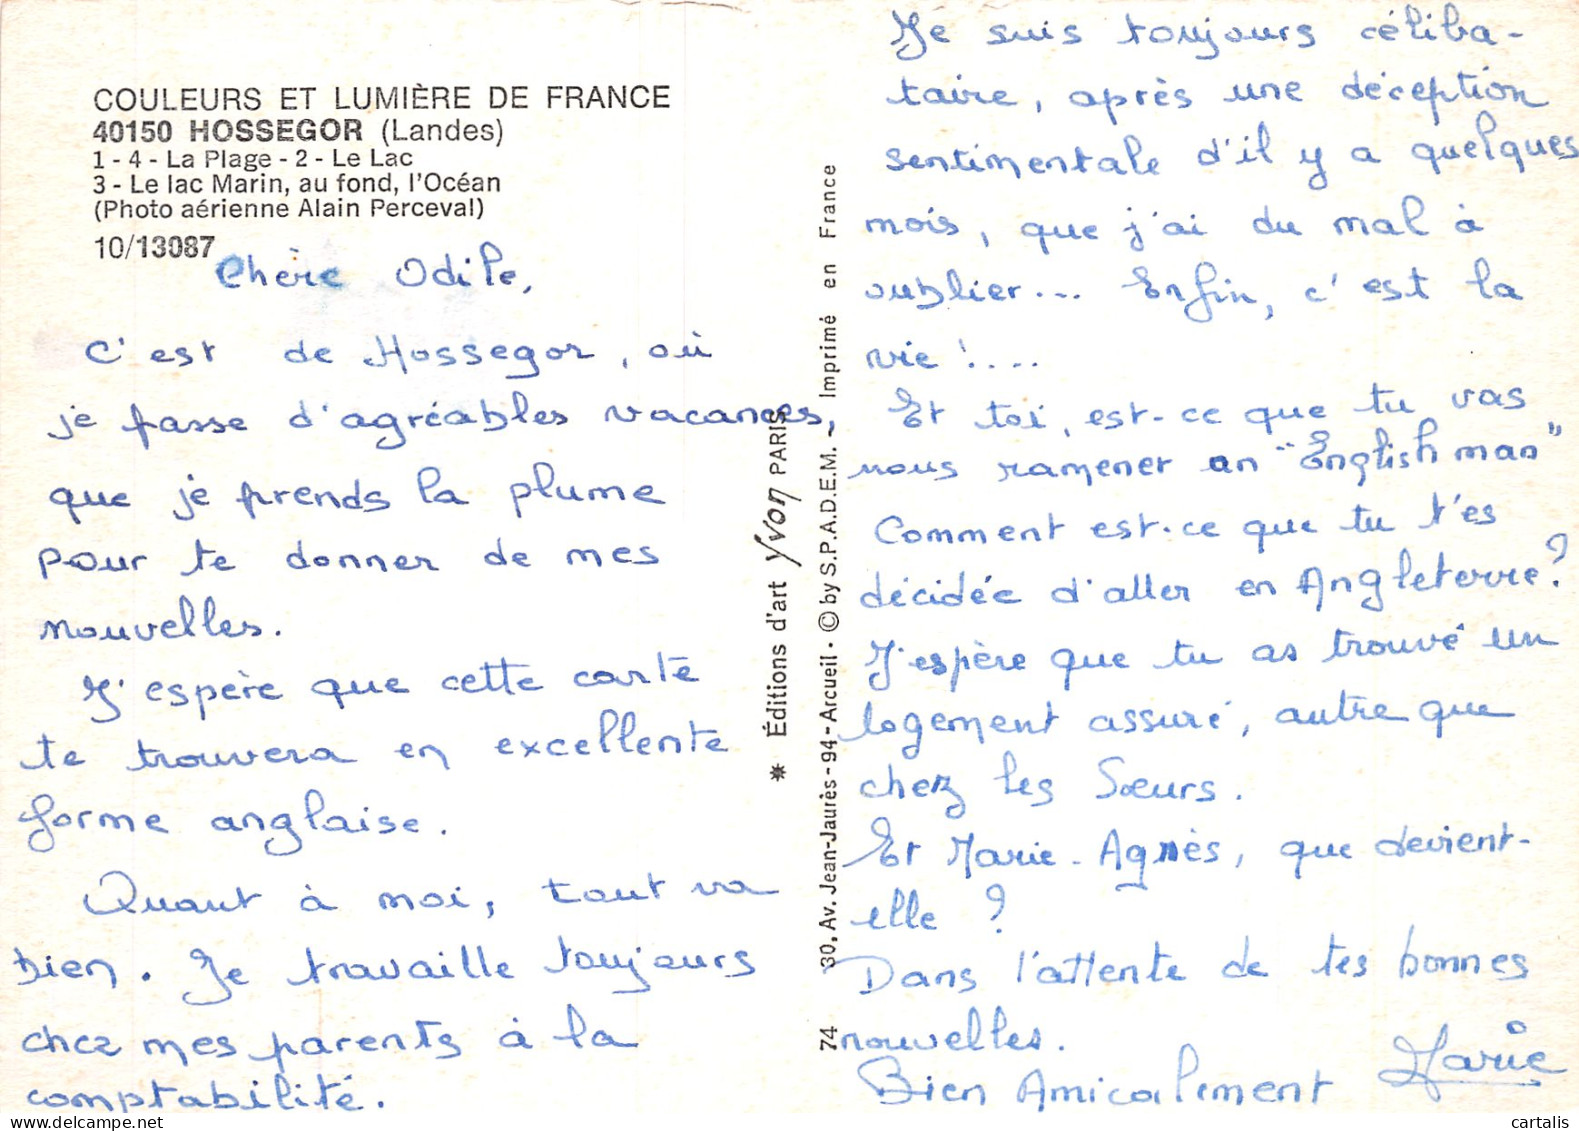 COULEURS ET LUMIÈRE DE FRANCE
40150 HOSSEGOR (Landes)
1 - 4 - La Plage - 2 - Le Lac
3 - Le lac Marin, au fond, l'Océan
(Photo aérienne Alain Perceval)
10/13087
Chère Odile,
C'est de Hossegor, où
je passe d'agréables vacances,
que je prends la plume
pour te donner de mes
nouvelles.
J'espère que cette carte
te trouvera en excellente
forme anglaise.
Quant à moi, tout va
bien. Je travaille toujours
chez mes parents à la
comptabilité.
74 30, Av. Jean-Jaurès - 94 - Arcueil - © by S.P.A.D.E.M. - Imprimé en France
* Éditions d'art Yvon PARIS
Je suis toujours céliba-
taire, après une déception
sentimentale d'il y a quelques
mois, que j'ai du mal à
oublier... Enfin, c'est la
vie !....
Et toi, est-ce que tu vas
nous ramener un "English man"
Comment est-ce que tu t'es
décidée d'aller en Angleterre ?
J'espère que tu as trouvé un
logement assuré, autre que
chez les Sœurs.
Et Marie-Agnès, que devient-
elle ?
Dans l'attente de tes bonnes
nouvelles.
Bien Amicalement Marie
cartalis